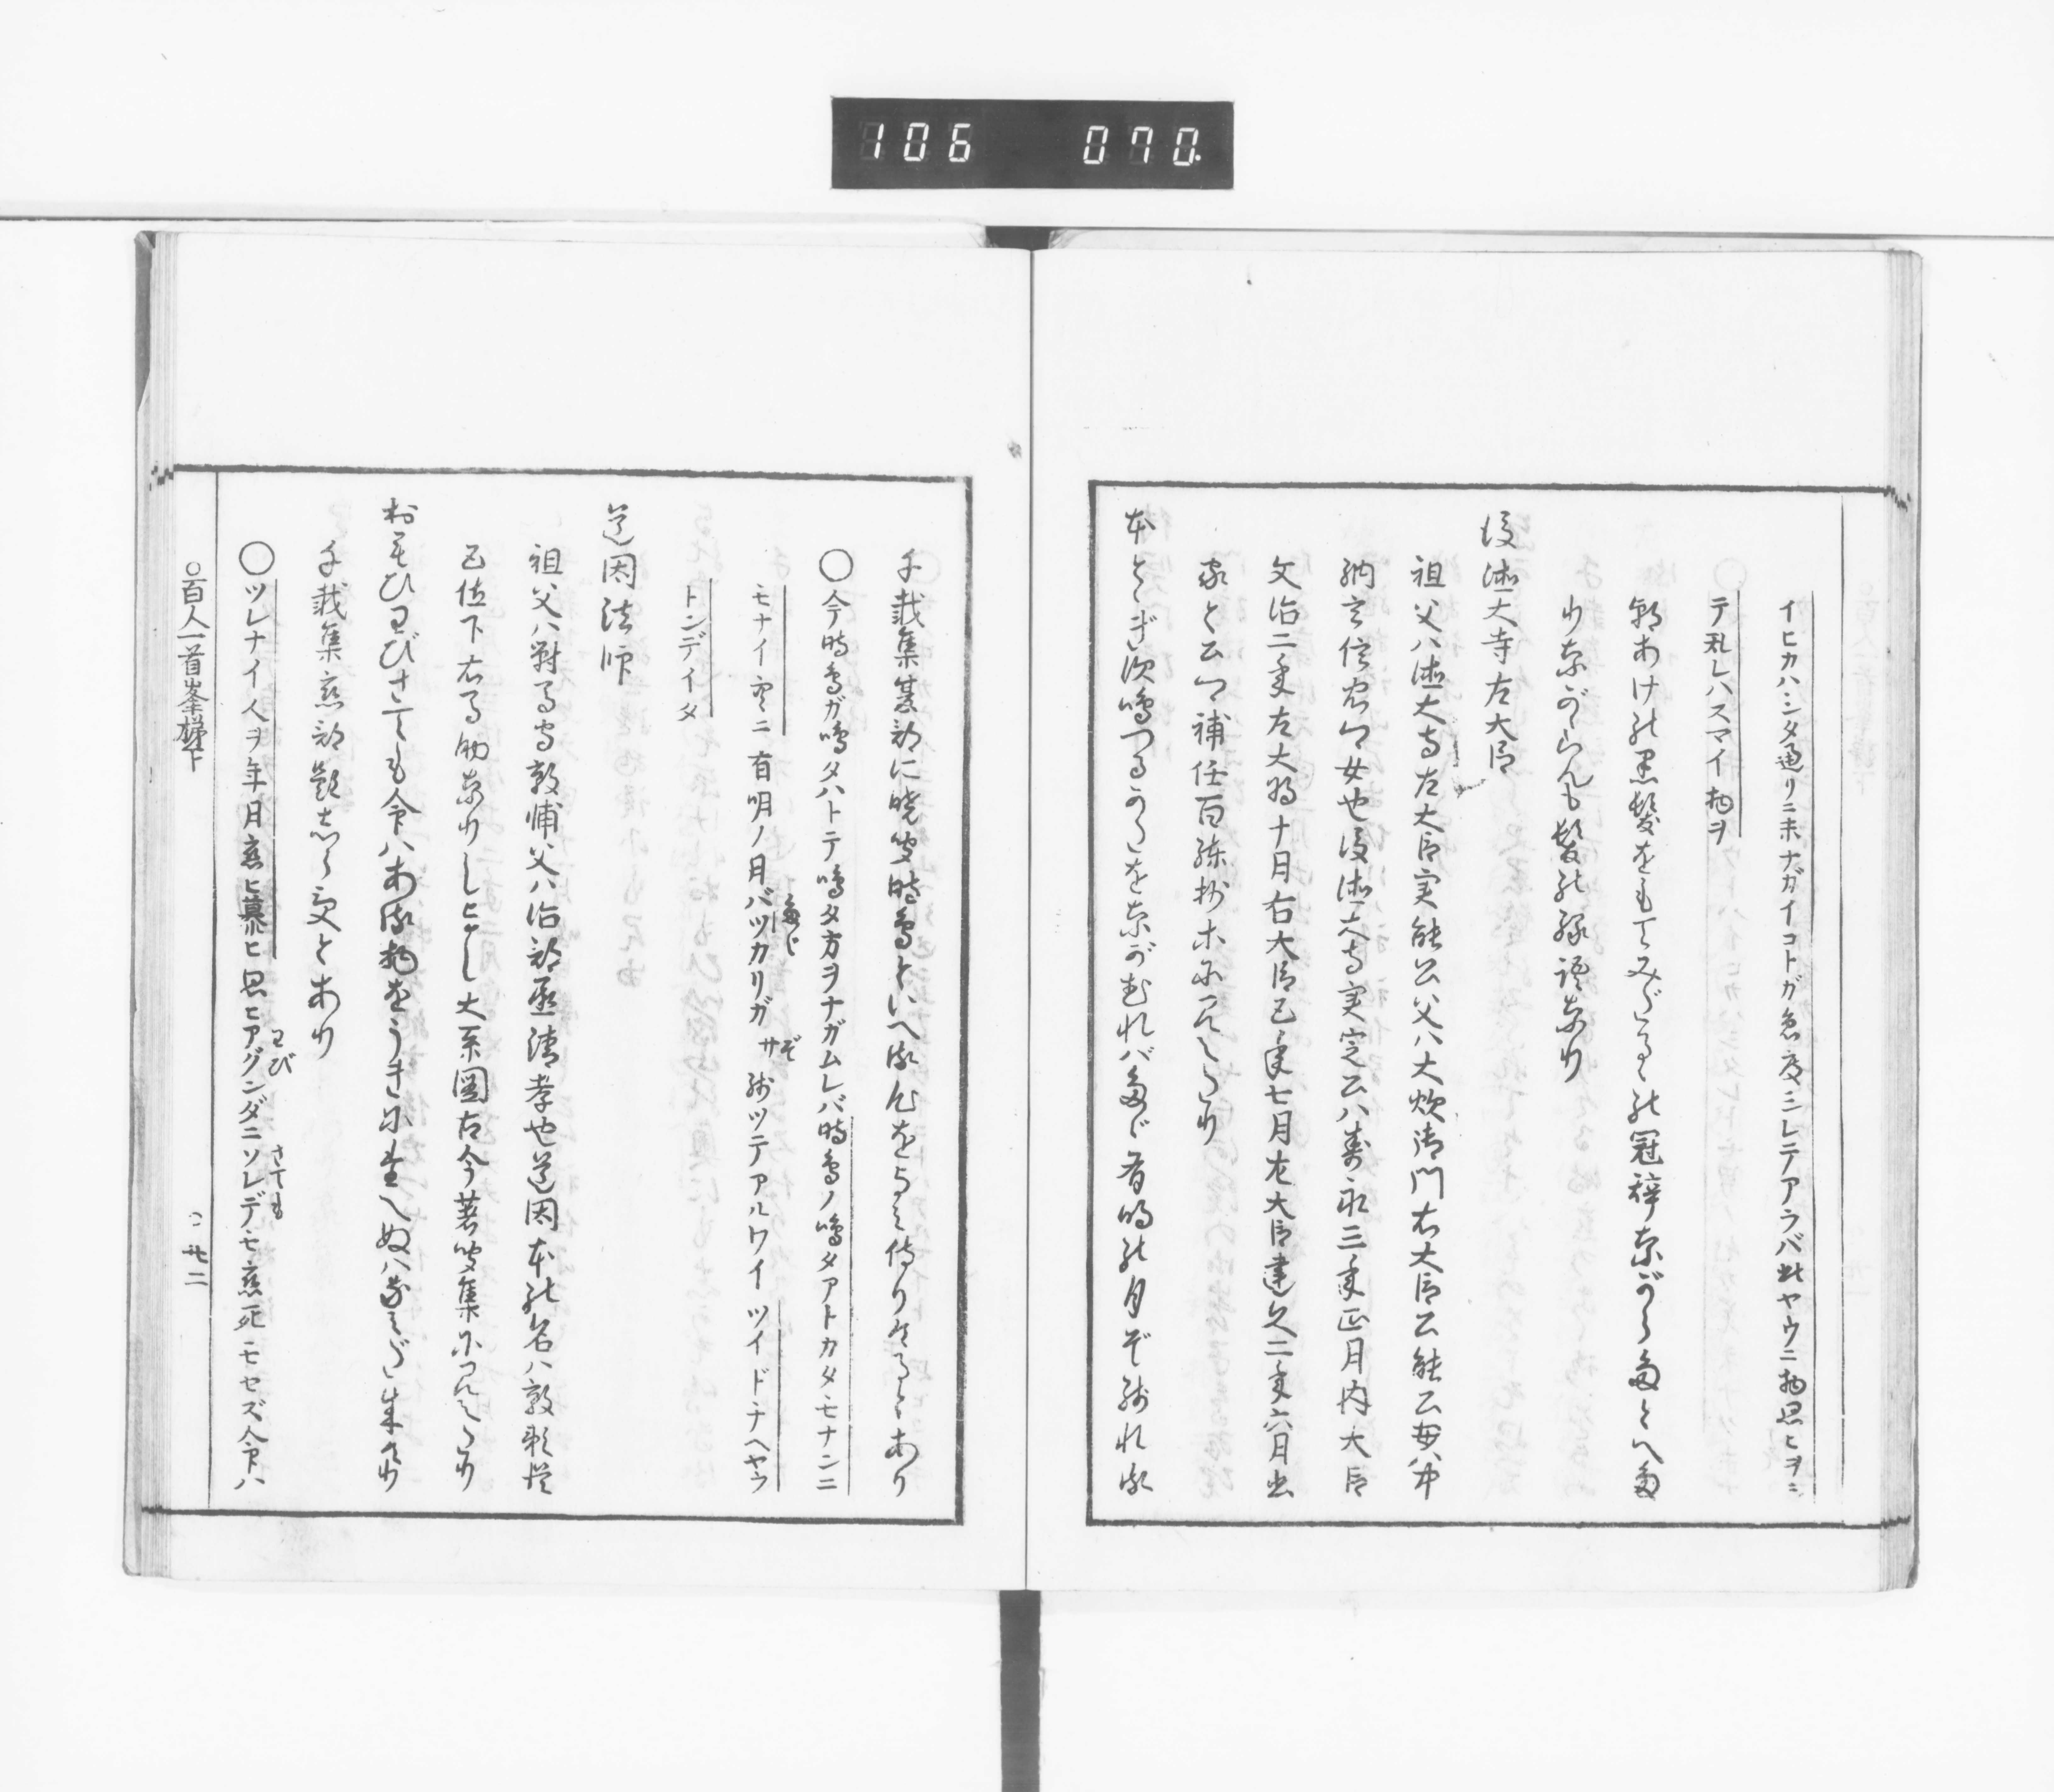 106 070.
イヒカハシタ通リニ末ナガイコトガ急度ミレテアラバ此ヤウニ物思ヒヲシ
テ乱レハスマイ物ヲ
朝あけの黒髪をもてみだるゝの冠辞ながらたとへた
りながらんも髪の縁語なり
後徳大寺左大臣
祖父ハ徳大寺左大臣実能公父ハ大炊御門右大臣公能公母ハ中
納言俊忠卿女也後徳大寺実定公ハ寿永三年正月内大臣
文治二年左大将十月右大臣五年七月左大臣建久二年六月出
家と公卿補任百練抄ホに見えたり
本とゝぎ須鳴つるかたを奈がむればたゞ有明の月ぞ残れる
千載集夏部に暁聞時鳥といへる心をよみ侍りけるとあり
〇今時鳥ガ鳴タハトテ鳴タ方ヲナガムレバ時鳥ノ鳴タアトカタモナンニ
モナイ空ニ有明ノ月バツカリガサ残ツテアルワイツイドチヘヤウ
たゞ
ぞ
トンデイタ
道因法師
祖父ハ対馬守敦輔父ハ治部丞清孝也道因本の名ハ敦頼従
五位下右馬助なりしとぞし大系図古今著聞集に見えたり
おもひわびさても命ハある物をうきに堪へぬハ涙なりけり
千載集恋部題志らずとあり
〇ツレナイ人ヲ年月恋ヒ慕ヒ思ヒアグンダニソレデモ恋死ニモセズ命ハ
わび
さても
〇百人一首峯梯下
廿二